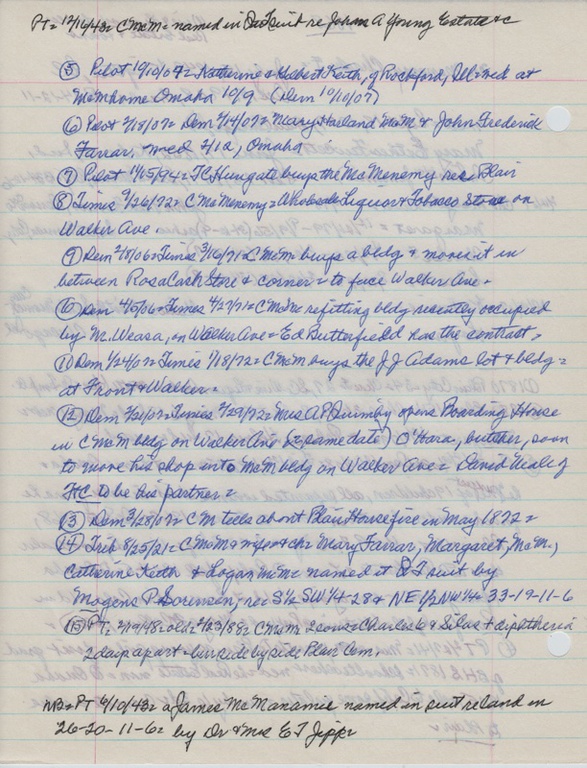 PT= 12/16/43= C McM= named in Q.T. suit re Johan A Young Estate &c
⑤ Pilot 10/10/07= Katherine & Hobert Keith, of Rockford, Ill= wed at
McM home Omaha 10/9 (Dem 10/10/07)
⑥ Pilot 2/18/07= Dem 2/14/07= Mary Harland McM & John Frederick
Farrar, wed 2/12, Omaha
⑦ Pilot 11/15/94= TC Hungate buys the McMenemy res= Blair
⑧ Times 9/26/72= C McMenemy= Wholesale Liquor & Tobacco Store on
Walker Ave=
⑨ Dem 2/10/06= Times 3/16/71= C McM buys a bldg & moves it in
between Rosa Cash Store & corner= to face Walker Ave=
⑥ Dem 4/5/06= Times 4/27/71= C McMc refitting bldg recently occupied
by M. Weasa, on Walker Ave= Ed Butterfield has the contract=
⑪ Dem 1/24/07= Times 1/18/72= C McM buys the J.J. Adams lot & bldg=
at Front & Walker=
⑫ Dem 2/21/07= Times 2/22/72= Mrs A P Quimby opens Boarding House
in C McM bldg on Walker Ave (& same date) O'Hara, butcher, soon
to move his shop into McM bldg on Walker Ave= David Neale of
FtC to be his partner=
⑬ Dem 3/28/07= CM tells about Blair House fire in May 1872=
⑭ Trib 8/25/21= C McM & wife & ch= Mary Farrar, Margaret, McM.,
Catherine Keith & Logan McMc named it Q T suit by
Mogens P. Sorensen, re= S½ SW 1/4-28 & NE 1/2 NW 1/4= 33-19-11-6
⑮ PT= 2/19/48= old= 2/23/88= C McM= 2 sons= Charles 6 & Silas 4 diptheria
2 days apart= bur side by side Blair Cem.
NB= PT 6/10/43= a James McManamie named in suit re land in
26-20-11-6= by Dr & Mrs E T Jipp=